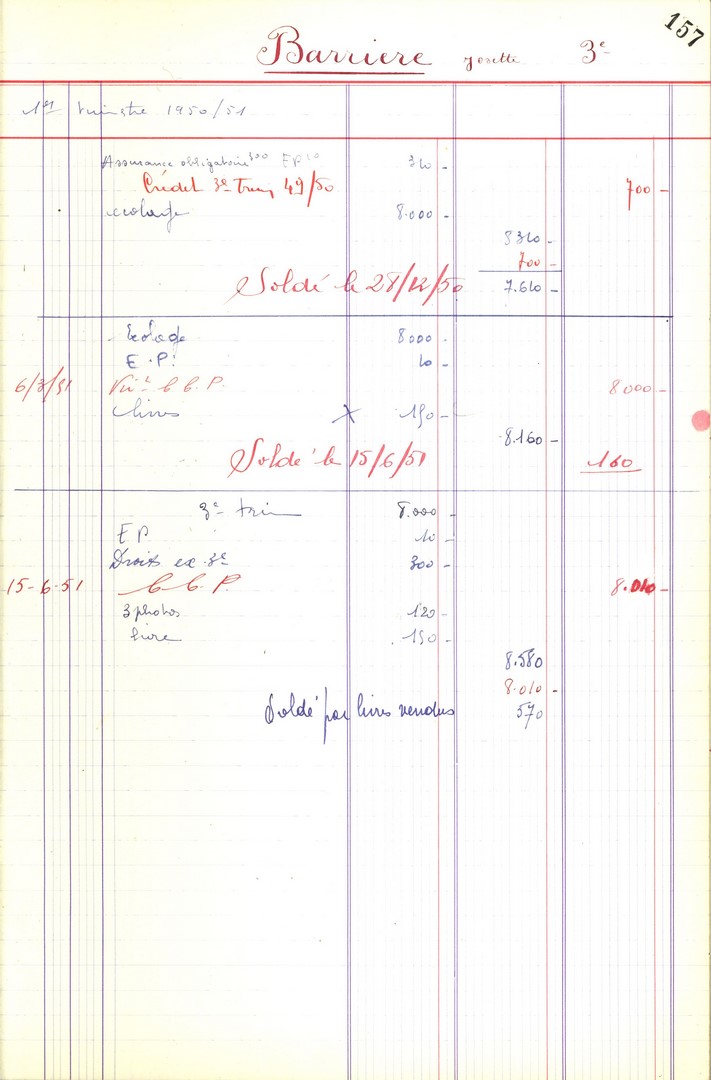 157
Barriere Josette 3e
1er trimestre 1950/51
Assurance obligatoire 300 EP 10 310 -
Crédit 3e Trim 49/50 700 -
écolage 8.000 -
8310 -
700 -
Soldé le 28/12/50 7.610 -
Ecolage 8000 -
E.P. 10 -
6/3/51 C.C.P. 8000 -
livres X 150 -
8.160 -
Soldé le 15/6/51 160
3e trim 8.000 -
EP 10 -
Droits ex. 3e 300 -
15-6-51 C.C.P. 8.010 -
3 photos 120 -
livre 150 -
8.580
8.010 -
Soldé par livres vendus 570